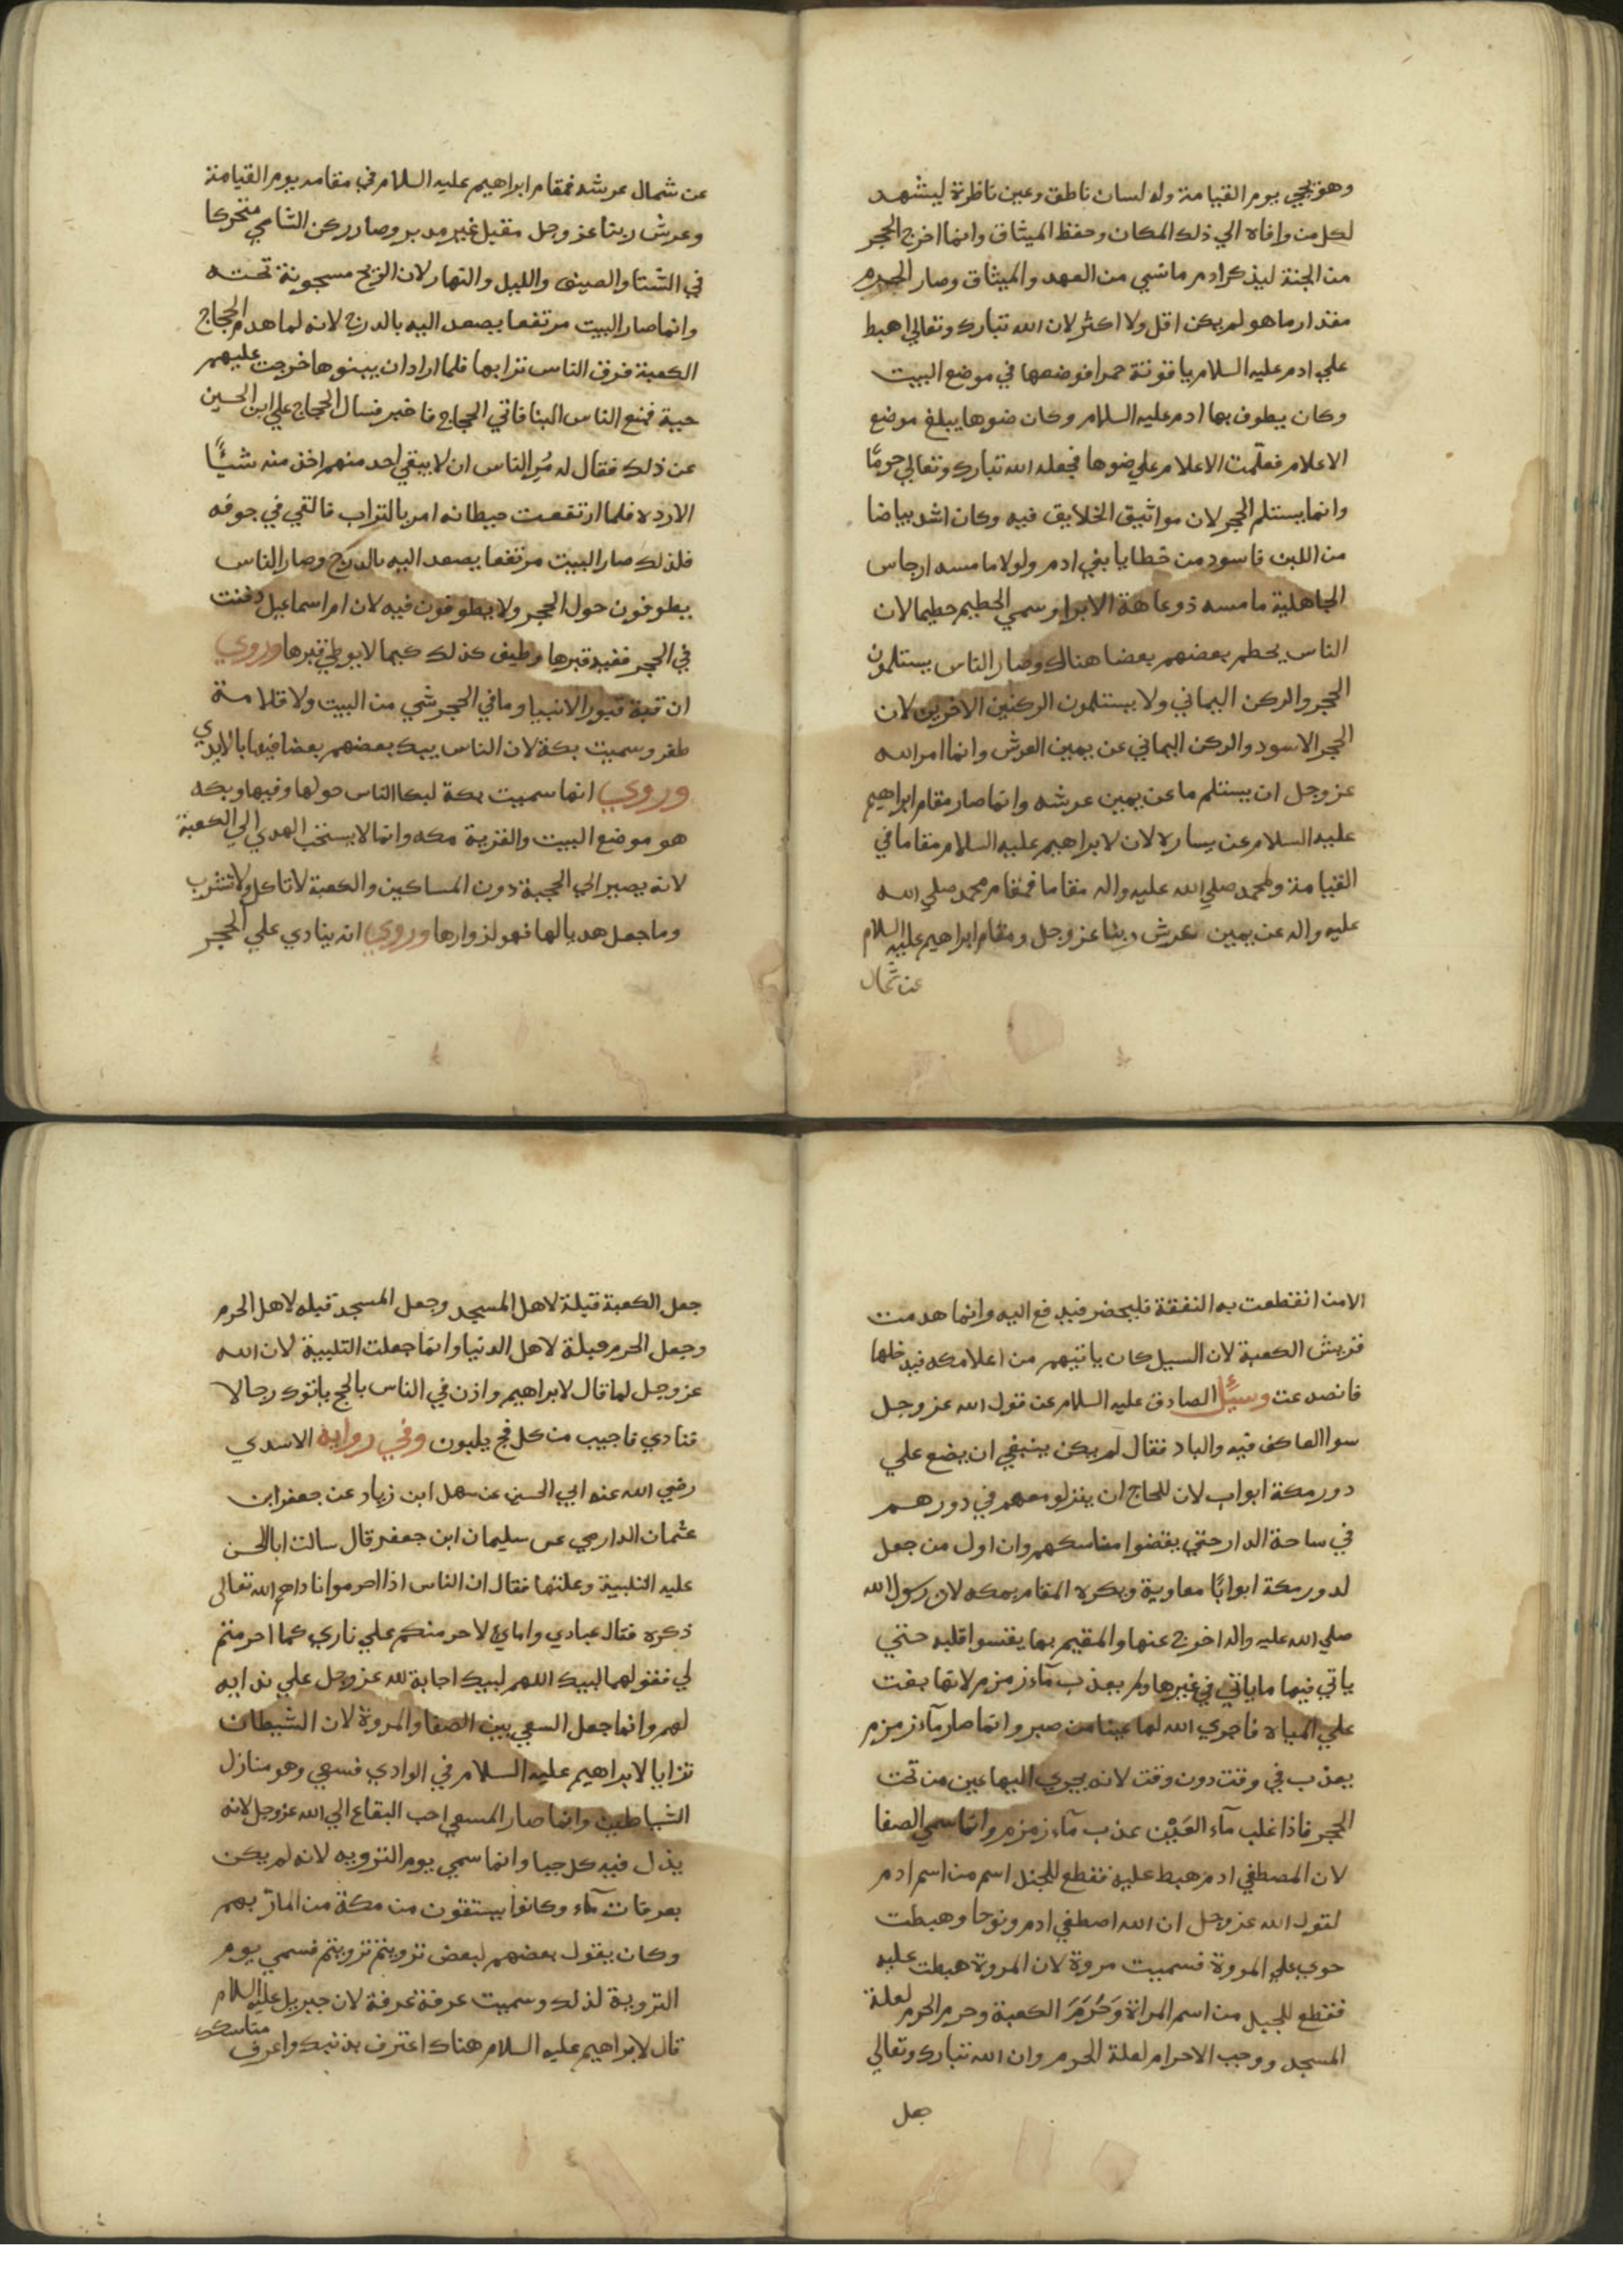 وهو يجي يوم القيامة وله لسان ناطق وعين ناظرة ليشهد
لكل من وافاه الي ذلك المكان وحفظ الميثاق وانما اخرج الحجر
من الجنة ليذكر ادم ما نسي من العهد والميثاق وصار الحرم
مقدار ما هو لم يكن اقل ولا اكثر لان الله تبارك وتعالي اهبط
علي ادم عليه السلام ياقوتة حمرا فوضعها في موضع البيت
وكان يطوف بها ادم عليه السلام وكان ضوها يبلغ موضع
الاعلام فعلّمت الاعلام علي ضوها فجعله الله تبارك وتعالي حرمًا
وانما يستلم الحجر لان مواثيق الخلايق فيه وكان اشد بياضا
من اللبن فاسود من خطايا بني ادم ولولا ما مسه ارجاس
الجاهلية ما مسه ذو عاهة الا برا وسمي الحطيم حطيما لان
الناس يحطم بعضهم بعضا هناك وصار الناس يستلمون
الحجر والركن اليماني ولا يستلمون الركنين الاخرين لان
الحجر الاسود والركن اليماني عن يمين العرش وانما امر الله
عز وجل ان يستلم ما عن يمين عرشه وانما صار مقام ابراهيم
عليه السلام عن يساره لان لابراهيم عليه السلام مقاما في
القيامة ولمحمد صلي الله عليه واله مقاما فمقام محمد صلي الله
عليه واله عن يمين عرش ربنا عز وجل ومقام ابراهيم عليه السلام
عن شمال
عن شمال عرشه فمقام ابراهيم عليه السلام في مقامه يوم القيامة
وعرش ربنا عز وجل مقبل غير مدبر وصار ركن الشامي متحركا
في الشتا والصيف والليل والنهار لان الريح مسجونة تحته
وانما صار البيت مرتفعا يصعد اليه بالدرج لانه لما هدم الحجاج
الكعبة فرق الناس ترابها فلما ارادان يبنوها خرجت عليهم
حية فمنع الناس البنا فاتي الحجاج فاخبر فسال الحجاج علي ابن الحسين
عن ذلك فقال له مُرِ الناس ان لا يبقي احد منهم اخذ منه شيئًا
الا رده فلما ارتفعت حيطانه امر بالتراب فالقي في جوفه
فلذلك صار البيت مرتفعا يصعد اليه بالدرج وصار الناس
يطوفون حول الحجر ولا يطوفون فيه لان ام اسماعيل دفنت
في الحجر ففيه قبرها وطيف كذلك كيما لا يوطي قبرها وروي
ان فيه قبور الانبيا وما في الحجر شي من البيت ولا قلامة
ظفر وسميت بكة لان الناس يبك بعضهم بعضا فيها بالايدي
وروي انها سميت بكة لبكا الناس حولها وفيها وبكه
هو موضع البيت والقرية مكه وانما لا يستحب الهدي الي الكعبة
لانه يصير الي الحجبة دون المساكين والكعبة لا تاكل ولا تشرب
وما جعل هديا لها فهو لزوارها وروي انه ينادي علي الحجر
الا من انقطعت به النفقة فليحضر فيدفع اليه وانما هدمت
قريش الكعبة لان السيل كان ياتيهم من اعلا مكه فيدخلها
فانصدعت وسيًل الصادق عليه السلام عن قول الله عز وجل
سوا العاكف فيه والباد فقال لم يكن ينبغي ان يضع علي
دور مكة ابواب لان للحاج ان ينزلو معهم في دورهم
في ساحة الدار حتي يقضوا مناسكهم وان اول من جعل
لدور مكة ابوابًا معاوية ويكره المقام بمكه لان رسول الله
صلي الله عليه واله اخرج عنها والمقيم بها يقسوا قلبه حتي
ياتي فيها ما ياتي في غيرها ولم يعذب مآء زمزم لانها بغت
علي المياه فاجري الله لها عينا من صبر وانما صار مآء زمزم
يعذب في وقت دون وقت لانه يجري اليها عين من تحت
الحجر فاذا غلب مآء العَيْن عذب مآء زمزم وانما سمي الصفا
لان المصطفي ادم هبط عليه فقطع للجبل اسم من اسم ادم
لقول الله عز وجل ان الله اصطفي ادم ونوحا وهبطت
حوي علي المروة فسميت مروة لان المروة هبطت عليه
فقطع للجبل من اسم المراة وَحُرِمَ الكعبة وحرم الحرم لعلة
المسجد ووجب الاحرام لعلة الحرم وان الله تبارك وتعالي
جعل
جعل الكعبة قبلة لاهل المسجد وجعل المسجد قبله لاهل الحرم
وجعل الحرم قبلة لاهل الدنيا وانما جعلت التلبية لان الله
عز وجل لما قال لابراهيم واذن في الناس بالحج ياتوك رجالا
فنادي فاجيب من كل فج يلبون وفي رواية الاسدي
رضي الله عنه ابي الحسين عن سهل ابن زياد عن جعفر ابن
عثمان الدارمي عن سليمان ابن جعفر قال سالت ابا الحسن
عليه التلبية وعلتها فقال ان الناس اذا احرموا ناداهم الله تعالى
ذكره فقال عبادي وامائي لاحرمنكم علي ناري كما احرمتم
لي فقولهم لبيك اللهم لبيك اجابة لله عز وجل علي ندايه
لهم وانما جعل السعي بين الصفا والمروة لان الشيطان
تزايا لابراهيم عليه السلام في الوادي فسعي وهو منازل
الشياطين وانما صار المسعي احب البقاع الي الله عز وجل لانه
يذل فيه كل جبار وانما سمي يوم التزويه لانه لم يكن
بعرفات مآء وكانوا يستقون من مكة من المآء ريهم
وكان يقول بعضهم لبعض تزويتم تزويتم فسمي يوم
التروية لذلك وسميت عرفة عرفة لان جبريل عليه السلام
قال لابراهيم عليه السلام هناك اعترف بذنبك واعرف مناسكك